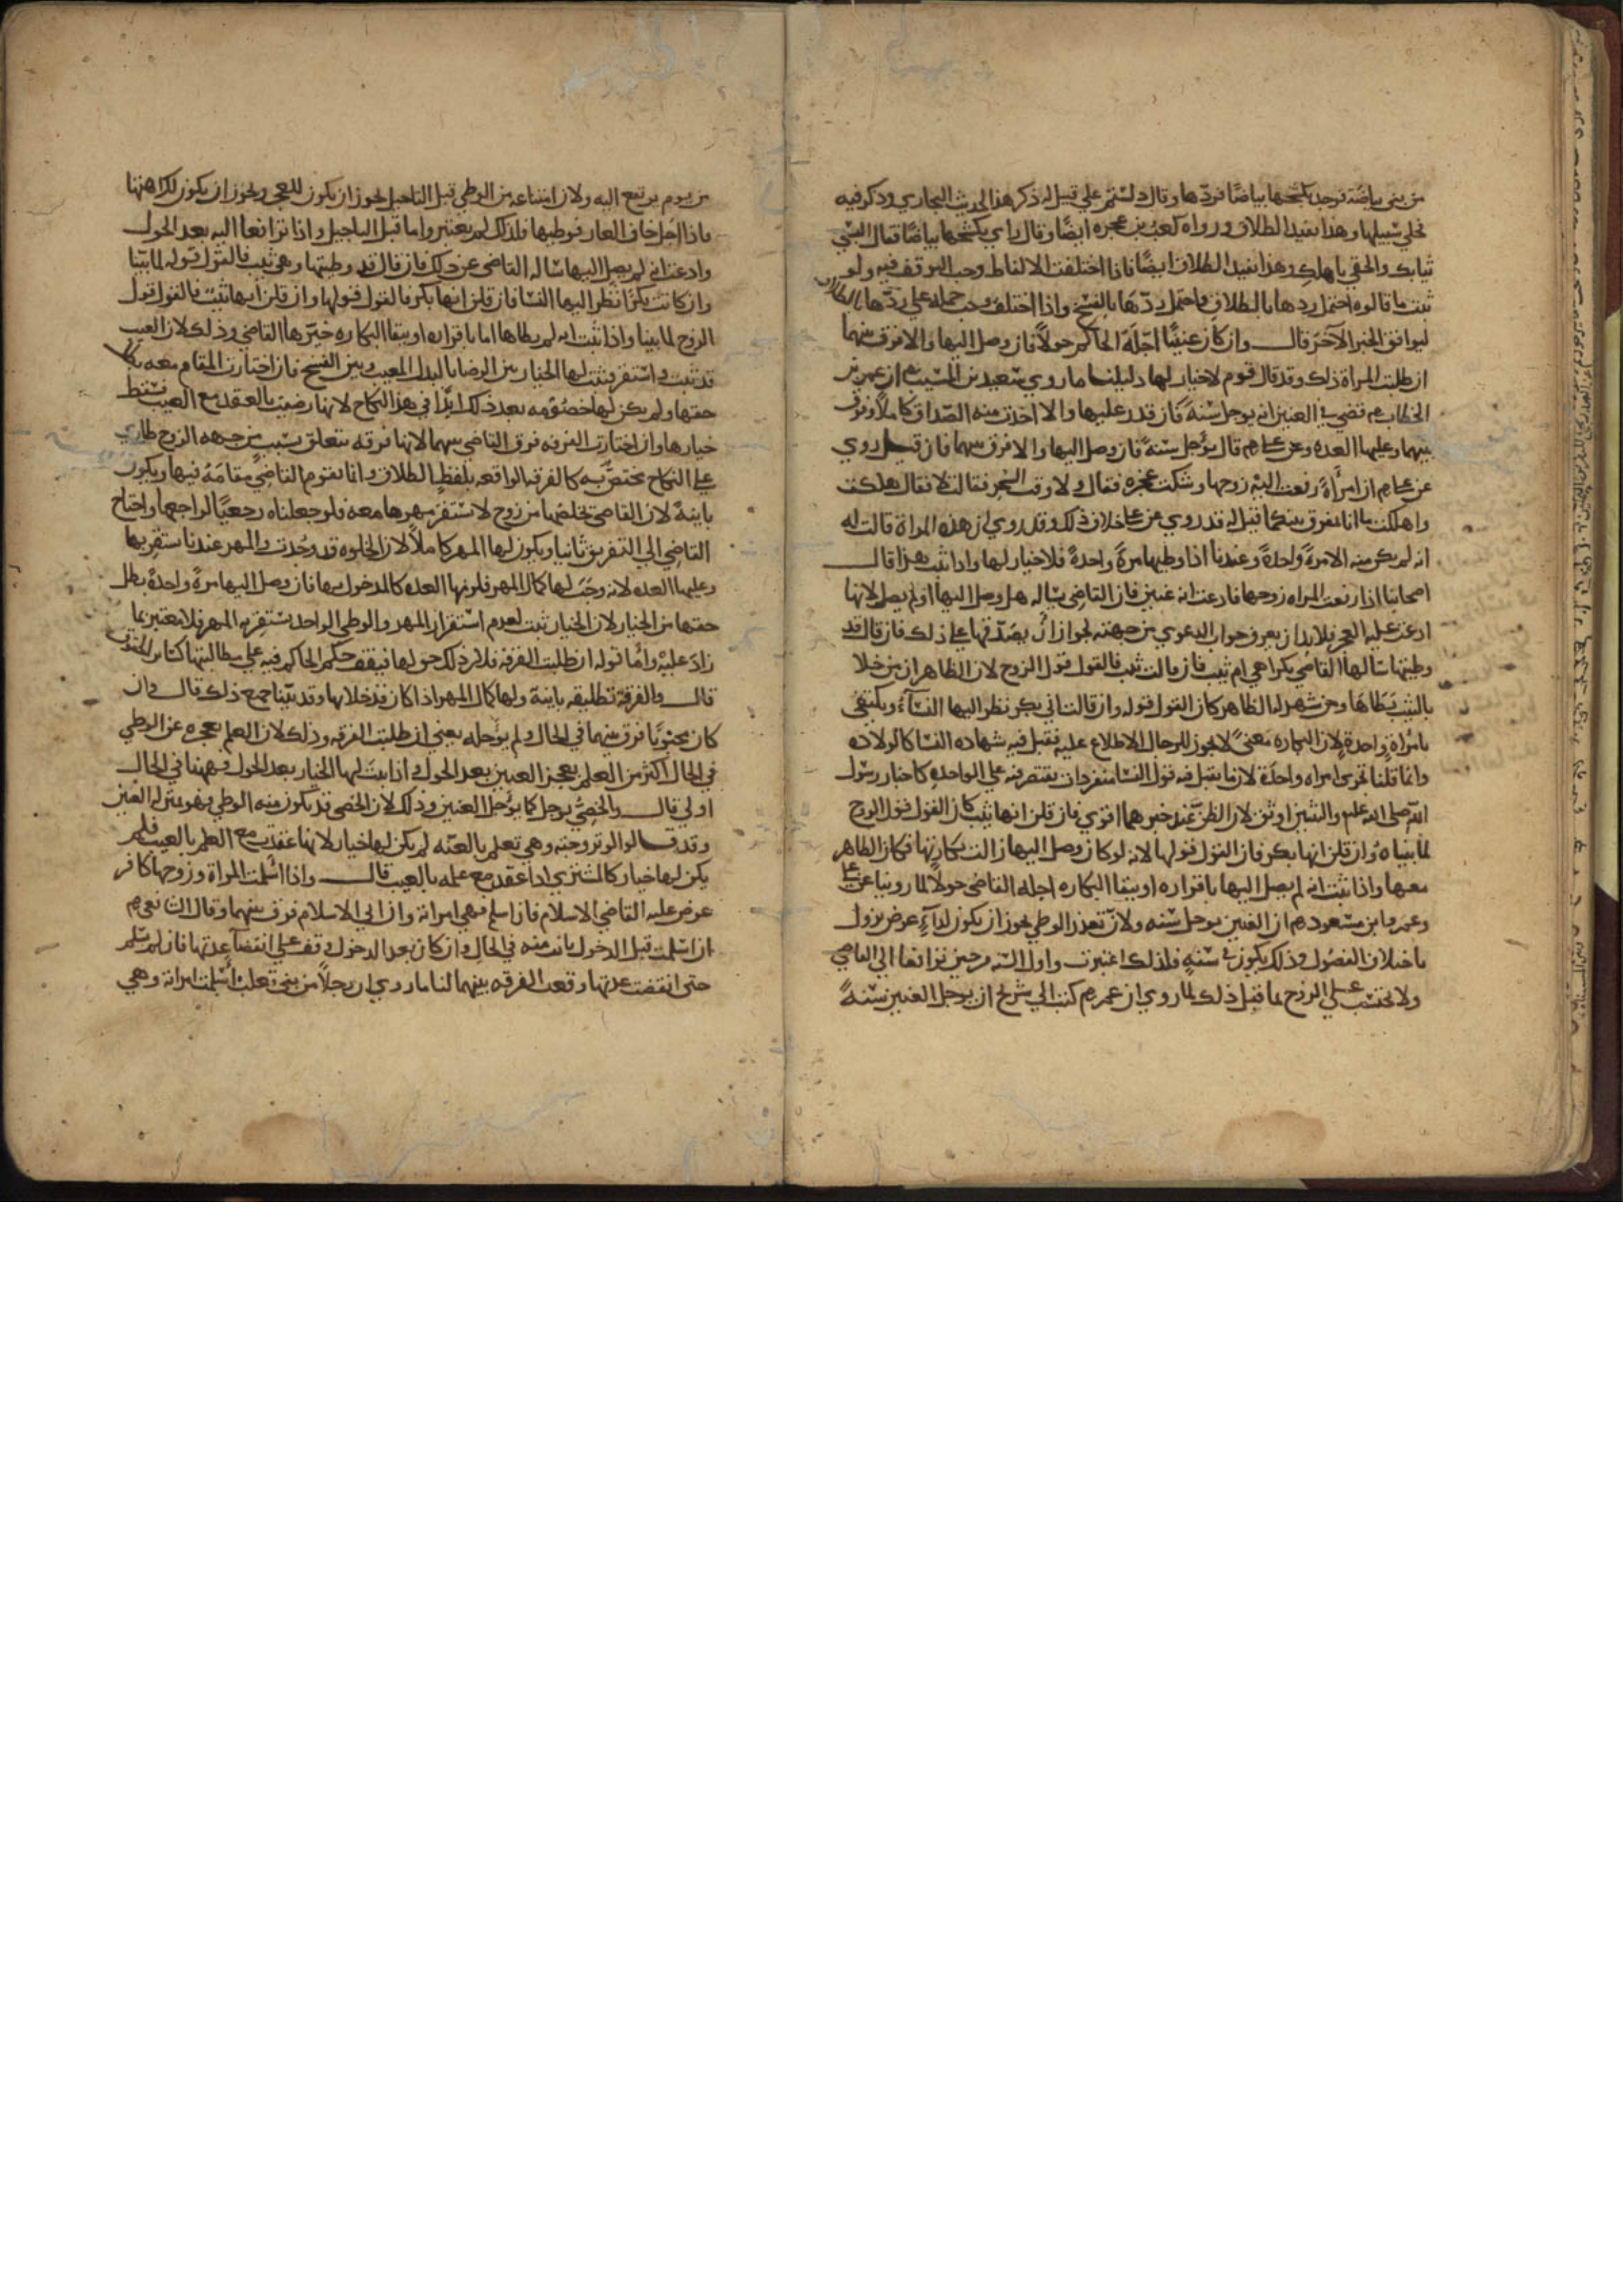 من بني بياضة فوجد بكشحها بياضًا فردها وقال دلستم علي قيل له ذكر هذا الحديث البخاري وذكر فيه
فخلي سبيلها وهذا يفيد الطلاق ورواه كعب بن عجره ايضًا وقال راي بكشحها بياضًا فقال البسي
ثيابك والحقي باهلك وهذا يفيد الطلاق ايضًا فاذا اختلفت الالفاظ وجب التوقف فيه ولو
ثبت ما قالوه احتمل ردها بالطلاق واحتمل ردّها بالفسخ واذا اختلف وجب حمله علي ردّها بالطلاق
ليوافق الخبر الآخر قال وان كان عنينًا اجّله الحاكم حولاً فان وصل اليها والا فرق بينهما
ان طلبت المراة ذلك وقد قال قوم لا خيار لها دليلنا ما روي سعيد بن المسيب ان عمر بن
الخطاب قضي في العنين انه يوجل سنة فان قدر عليها والا اخذت منه الصداق كاملاً وفرق
بينهما وعليها العده وعن علي قال يوجل سنةً فان وصل اليها والا فرق بينهما فان قيل روي
عن علي ان امرأةً رفعت اليه زوجها وشكت عجزه فقال ولا وقت السحر فقالت لا فقال هلكت
واهلكت ما انا بمفرق بينكما قيل له قد روي عن علي خلاف ذلك وقد روي ان هذه المراة قالت له
انه لم يكن منه الا مرةً واحدةً وعندنا اذا وطيها مرةً واحدةً فلا خيار لها واذا ثبت هذا قال
اصحابنا اذا رفعت المراه زوجها فادعت انه عنين فان القاضي يساله هل وصل اليها او لم يصل لانها
ادعت عليه العجز فلا بد ان يعرف جواب الدعوي من جهته لجواز ان يصدّقها علي ذلك فان قال قد
وطيتها سالها القاضي بكرا هي ام ثيب فان قالت ثيب فالقول قول الزوج لان الظاهر ان من خلا
بالثيب يطاها ومن شهد له الظاهر كان القول قوله وان قالت اني بكر نظر اليها النسآء ويكتفي
بامرأة واحدة لان البكاره معنىً لا يجوز للرجال الاطلاع عليه فقبل فيه شهاده النسا كالولاده
وانما قلنا تجزي امراه واحدة لان ما يقبل فيه قول النسا منفردات يقتصر فيه علي الواحده كاخبار رسول
الله صلى الله عليه والثنتين اوثق لان الظن عند خبرهما اقوي فان قلن انها ثيب كان القول قول الزوج
لما بيناه وان قلن انها بكر فان القول قولها لانه لو كان وصل اليها زالت بكارتها فكان الظاهر
معها واذا ثبت انه لم يصل اليها باقراره او ببقا البكاره اجله القاضي حولاً لما روينا عن علي
وعمر وابن مسعود ان العنين يوجل سنه ولان تعذر الوطي يجوز ان يكون لدآءٍ عرض يزول
باختلاف الفصول وذلك يكون في سنةٍ فلذلك اعتبرت واول السنه من حين ترافعا الي القاضي
ولا يحتسب علي الزوج بما قبل ذلك لما روي ان عمر كتب الي شريح ان يوجل العنين سنةً
من يوم يرتفع اليه ولان امتناعه من الوطي قبل التاجيل يجوز ان يكون للعجز ويجوز ان يكون لكراهتها
فاذا اجل خاف العار فوطيها فلذلك لم يعتبر واما قبل التاجيل واذا ترافعا اليه بعد الحول
وادعت انه لم يصل اليها ساله القاضي عن ذلك فان قال قد وطيتها وهي ثيب فالقول قوله لما بيّنا
وان كانت بكرًا نظر اليها النسا فان قلن انها بكر فالقول قولها وان قلن انها ثيب فالقول قول
الزوج لما بينا واذا ثبت انه لم يطاها اما باقراره او ببقا البكاره خيّرها القاضي وذلك لان العيب
قد ثبت واستقر فيثبت لها الخيار بين الرضا بالبدل المعيب وبين الفسخ فان اختارت المقام معه بطل
حقها ولم يكن لها خصومه بعد ذلك ابدًا في هذا النكاح لانها رضيت بالعقد مع العيب فسقط
خيارها وان اختارت الفرقه فرق القاضي بينهما لانها فرقه تتعلق بسبب من جهه الزوج طاري
علي النكاح مختص به كالفرقه الواقعه بلفظ الطلاق وانما يقوم القاضي مقامه فيها ويكون
باينةً لان القاضي يخلصها من زوج لا تستقر مهرها معه فلو جعلناه رجعيًا لراجعها واحتاج
القاضي الي التفريق ثانيا ويكون لها المهر كاملاً لان الخلوه قد وجدت والمهر عندنا يستقر بها
وعليها العده لانه وجب لها كمال المهر فلزمها العده كالمدخول بها فان وصل اليها مرةً واحدةً بطل
حقها من الخيار لان الخيار ثبت لعدم استقرار المهر والوطي الواحد يستقر به المهر فلا يعتبر بما
زاد عليه وأما قوله ان طلبت الفرقه فلان ذلك حق لها فيقف حكم الحاكم فيه علي مطالبتها كسائر الحقوق
قال والفرقة تطليقه باينة ولها كمال المهر اذا كان قد خلا بها وقد بيّنا جميع ذلك قال وان
كان مجبوبًا فرق بينهما في الحال ولم يؤجله يعني ان طلبت الفرقه وذلك لان العلم بعجزه عن الوطي
في الحال اكثر من العلم بعجز العنين بعد الحول فاذا ثبت لها الخيار بعد الحول فههنا في الحال
اولي قال والخصيّ يوجل كما يؤجل العنين وذلك لان الخصي قد يكون منه الوطي فهو بمنزله العنين
وقد قالوا لو تزوجته وهي تعلم بالعنّه لم يكن لها خيار لانها عقدت مع العلم بالعيب فلم
يكن لها خيار كالمشتري اذا عقد مع علمه بالعيب قال واذا اسلمت المراة وزوجها كافر
عرض عليه القاضي الاسلام فان اسلم فهي امراته وان ابي الاسلام فرق بينهما وقال الشافعي
ان اسلمت قبل الدخول بانت منه في الحال وان كان بعد الدخول وقف علي انقضآ عدتها فان لم يسلم
حتى انقضت عدتها وقعت الفرقه بينهما لنا ما روي ان رجلاً من بني تغلب أسلمت امراته وهي